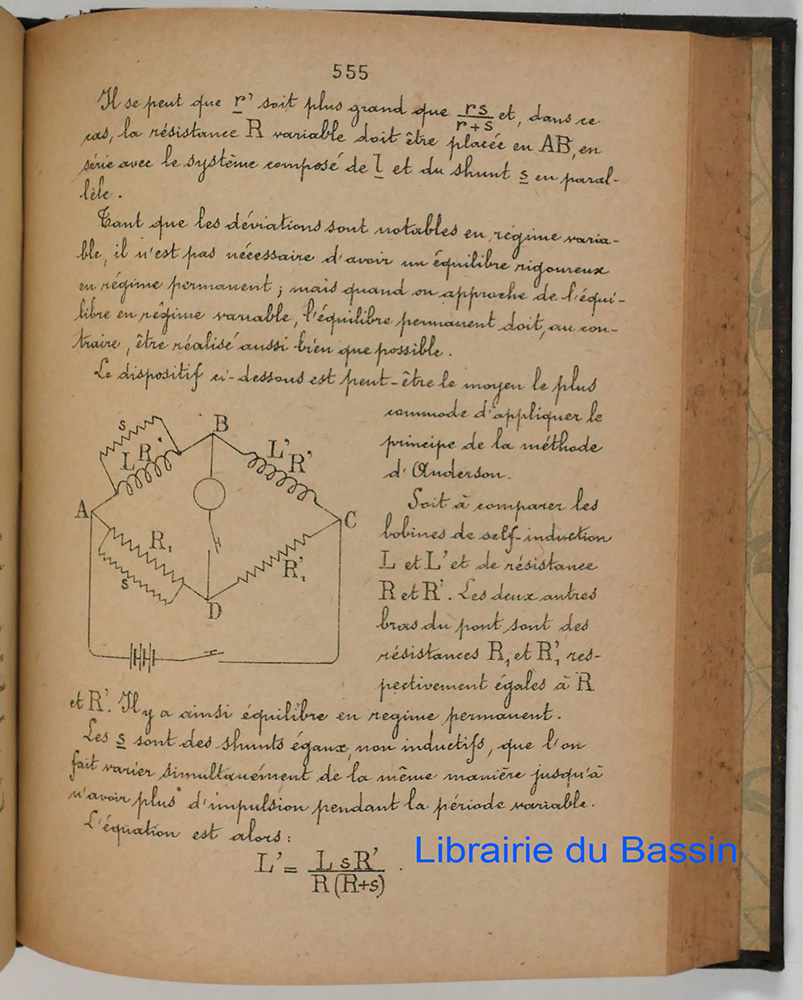 555
Il se peut que r' soit plus grand que rs/r+s et, dans ce
cas, la résistance R variable doit être placée en AB, en
série avec le système composé de l et du shunt s en paral-
lèle.
Tant que les déviations sont notables en régime varia-
ble, il n'est pas nécessaire d'avoir un équilibre rigoureux
en régime permanent ; mais quand on approche de l'équi-
libre en régime variable, l'équilibre permanent doit, au con-
traire, être réalisé aussi bien que possible.
Le dispositif ci-dessous est peut-être le moyen le plus
commode d'appliquer le
principe de la méthode
d'Anderson.
Soit à comparer les
bobines de self-induction
L et L' et de résistance
R et R'. Les deux autres
bras du pont sont des
résistances R₁ et R'₁ res-
pectivement égales à R
et R'. Il y a ainsi équilibre en regime permanent.
Les s sont des shunts égaux, non inductifs, que l'on
fait varier simultanément de la même manière jusqu'à
n'avoir plus d'impulsion pendant la période variable.
L'équation est alors :
L' = L s R' / R (R+s) .
s
B
L R'
L' R'
A
C
R₁
s
R'₁
D
Librairie du Bassin